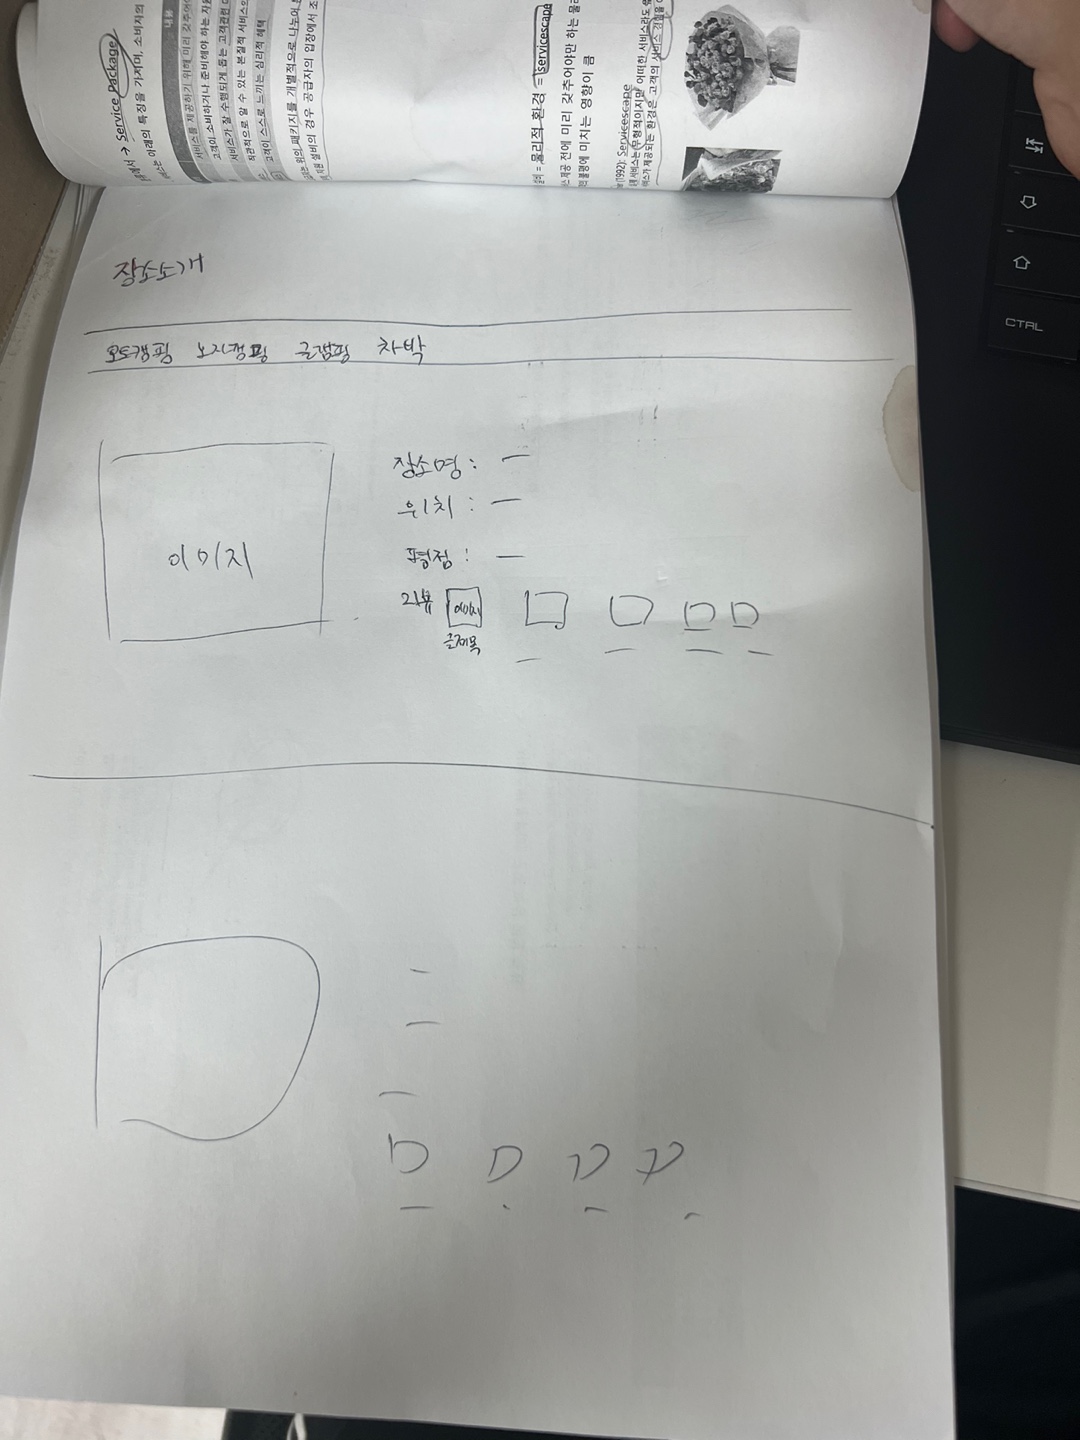 → Service Package
는 아래의 특징을 가지며, 소비자의
내용
서비스를 제공하기 위해 미리 갖추어
고객이 소비하거나 준비해야 하는 자원
서비스가 잘 수행되게 돕는 고객관련
직관적으로 알 수 있는 본질적 서비스의
고객이 스스로 느끼는 심리적 혜택
위의 패키지를 개별적으로 나누더
설비의 경우 공급자의 입장에서 조
= 물리적 환경 = servicescape
제공 전에 미리 갖추어야만 하는 물리
불평에 미치는 영향이 큼
(1992): Servicescape
서비스는 무형적이지만 어떠한 서비스라도
제공되는 환경은 고객의 서비스 경험을
CTRL
장소소개
오토캠핑 노지캠핑 글램핑 차박
이미지
장소명 : —
위치 : —
평점 : —
리뷰 이미지
글제목